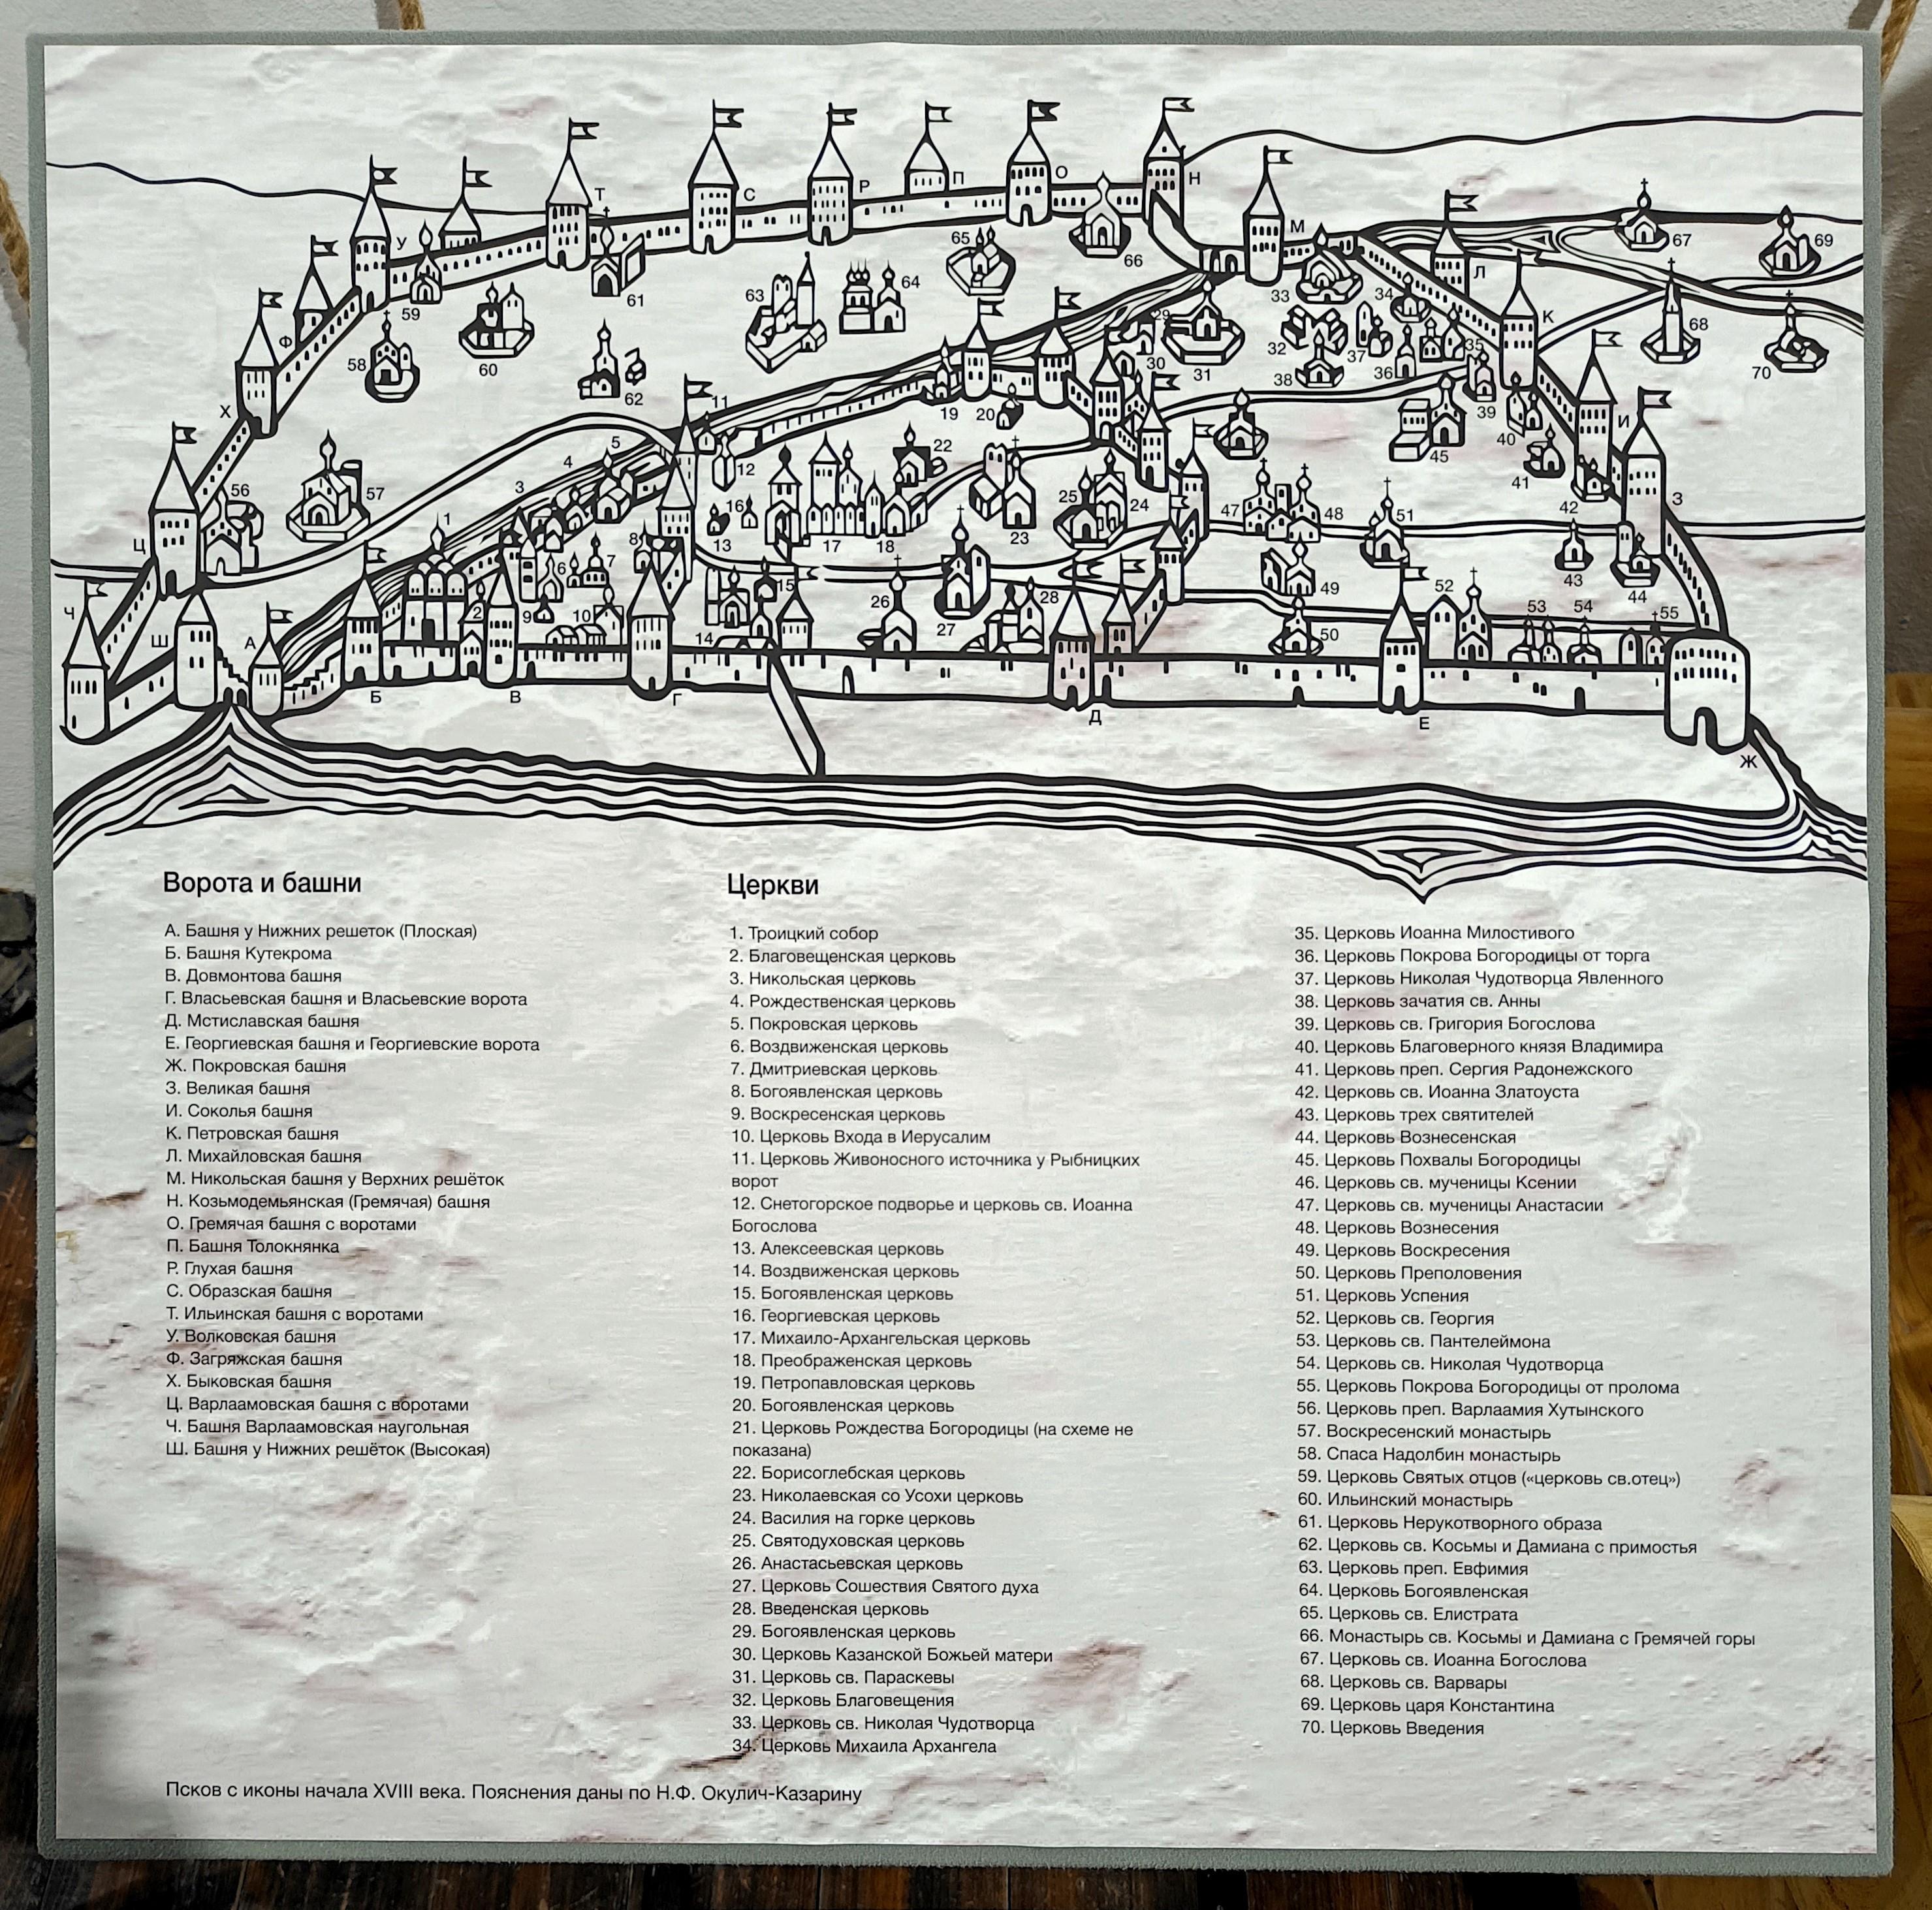 Т
С
Р
П
О
Н
У
М
67
69
65
66
Л
61
63
64
33
34
59
К
68
Ф
58
60
29
32
37
35
62
30
31
38
36
70
Х
11
19
20
39
И
5
22
40
4
12
45
41
56
57
3
16
25
24
47
48
51
42
З
1
13
17
18
23
Ц
8
7
6
15
49
43
44
Ч
Ш
А
2
9
10
14
26
27
28
50
52
53
54
55
Б
В
Г
Д
Е
Ж
Ворота и башни
А. Башня у Нижних решеток (Плоская)
Б. Башня Кутекрома
В. Довмонтова башня
Г. Власьевская башня и Власьевские ворота
Д. Мстиславская башня
Е. Георгиевская башня и Георгиевские ворота
Ж. Покровская башня
З. Великая башня
И. Соколья башня
К. Петровская башня
Л. Михайловская башня
М. Никольская башня у Верхних решёток
Н. Козьмодемьянская (Гремячая) башня
О. Гремячая башня с воротами
П. Башня Толокнянка
Р. Глухая башня
С. Образская башня
Т. Ильинская башня с воротами
У. Волковская башня
Ф. Загряжская башня
Х. Быковская башня
Ц. Варлаамовская башня с воротами
Ч. Башня Варлаамовская наугольная
Ш. Башня у Нижних решёток (Высокая)
Церкви
1. Троицкий собор
2. Благовещенская церковь
3. Никольская церковь
4. Рождественская церковь
5. Покровская церковь
6. Воздвиженская церковь
7. Дмитриевская церковь
8. Богоявленская церковь
9. Воскресенская церковь
10. Церковь Входа в Иерусалим
11. Церковь Живоносного источника у Рыбницких
ворот
12. Снетогорское подворье и церковь св. Иоанна
Богослова
13. Алексеевская церковь
14. Воздвиженская церковь
15. Богоявленская церковь
16. Георгиевская церковь
17. Михаило-Архангельская церковь
18. Преображенская церковь
19. Петропавловская церковь
20. Богоявленская церковь
21. Церковь Рождества Богородицы (на схеме не
показана)
22. Борисоглебская церковь
23. Николаевская со Усохи церковь
24. Василия на горке церковь
25. Святодуховская церковь
26. Анастасьевская церковь
27. Церковь Сошествия Святого духа
28. Введенская церковь
29. Богоявленская церковь
30. Церковь Казанской Божьей матери
31. Церковь св. Параскевы
32. Церковь Благовещения
33. Церковь св. Николая Чудотворца
34. Церковь Михаила Архангела
35. Церковь Иоанна Милостивого
36. Церковь Покрова Богородицы от торга
37. Церковь Николая Чудотворца Явленного
38. Церковь зачатия св. Анны
39. Церковь св. Григория Богослова
40. Церковь Благоверного князя Владимира
41. Церковь преп. Сергия Радонежского
42. Церковь св. Иоанна Златоуста
43. Церковь трех святителей
44. Церковь Вознесенская
45. Церковь Похвалы Богородицы
46. Церковь св. мученицы Ксении
47. Церковь св. мученицы Анастасии
48. Церковь Вознесения
49. Церковь Воскресения
50. Церковь Преполовения
51. Церковь Успения
52. Церковь св. Георгия
53. Церковь св. Пантелеймона
54. Церковь св. Николая Чудотворца
55. Церковь Покрова Богородицы от пролома
56. Церковь преп. Варлаамия Хутынского
57. Воскресенский монастырь
58. Спаса Надолбин монастырь
59. Церковь Святых отцов («церковь св.отец»)
60. Ильинский монастырь
61. Церковь Нерукотворного образа
62. Церковь св. Косьмы и Дамиана с примостья
63. Церковь преп. Евфимия
64. Церковь Богоявленская
65. Церковь св. Елистрата
66. Монастырь св. Косьмы и Дамиана с Гремячей горы
67. Церковь св. Иоанна Богослова
68. Церковь св. Варвары
69. Церковь царя Константина
70. Церковь Введения
Псков с иконы начала XVIII века. Пояснения даны по Н.Ф. Окулич-Казарину